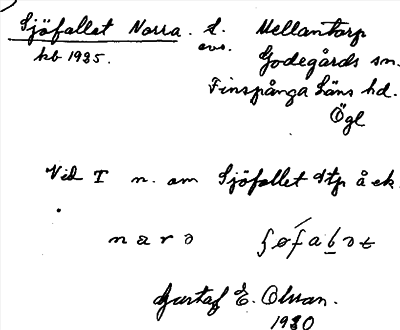 Sjöfallet Norra. t. Mellantorp
hb 1935. avs. Godegårds sn.
Finspånga Läns hd.
Ögl
Vid T n. om Sjöfallet dtp å ek.
Gustaf E. Olsson.
1930